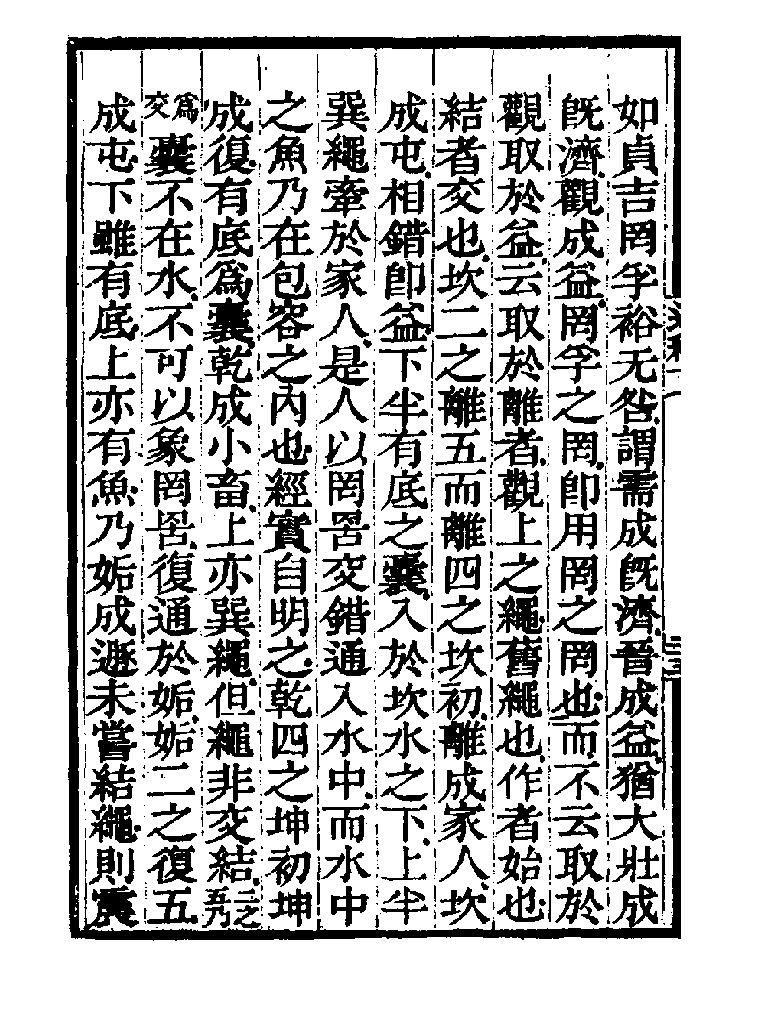 如貞吉罔孚裕无咎謂需成旣濟晉成益猶大壯成
旣濟觀成益罔孚之罔卽用罔之罔也而不云取於
觀取於益云取於離者觀上之繩舊繩也作者始也
結者交也坎二之離五而離四之坎初離成家人坎
成屯相錯卽益下半有底之囊入於坎水之下上半
巽繩牽於家人是人以罔罟交錯通入水中而水中
之魚乃在包容之內也經實自明之乾四之坤初坤
成復有底爲囊乾成小畜上亦巽繩但繩非交結二之五乃
爲交囊不在水不可以象罔罟復通於姤姤二之復五
成屯下雖有底上亦有魚乃姤成遯未嘗結繩則震